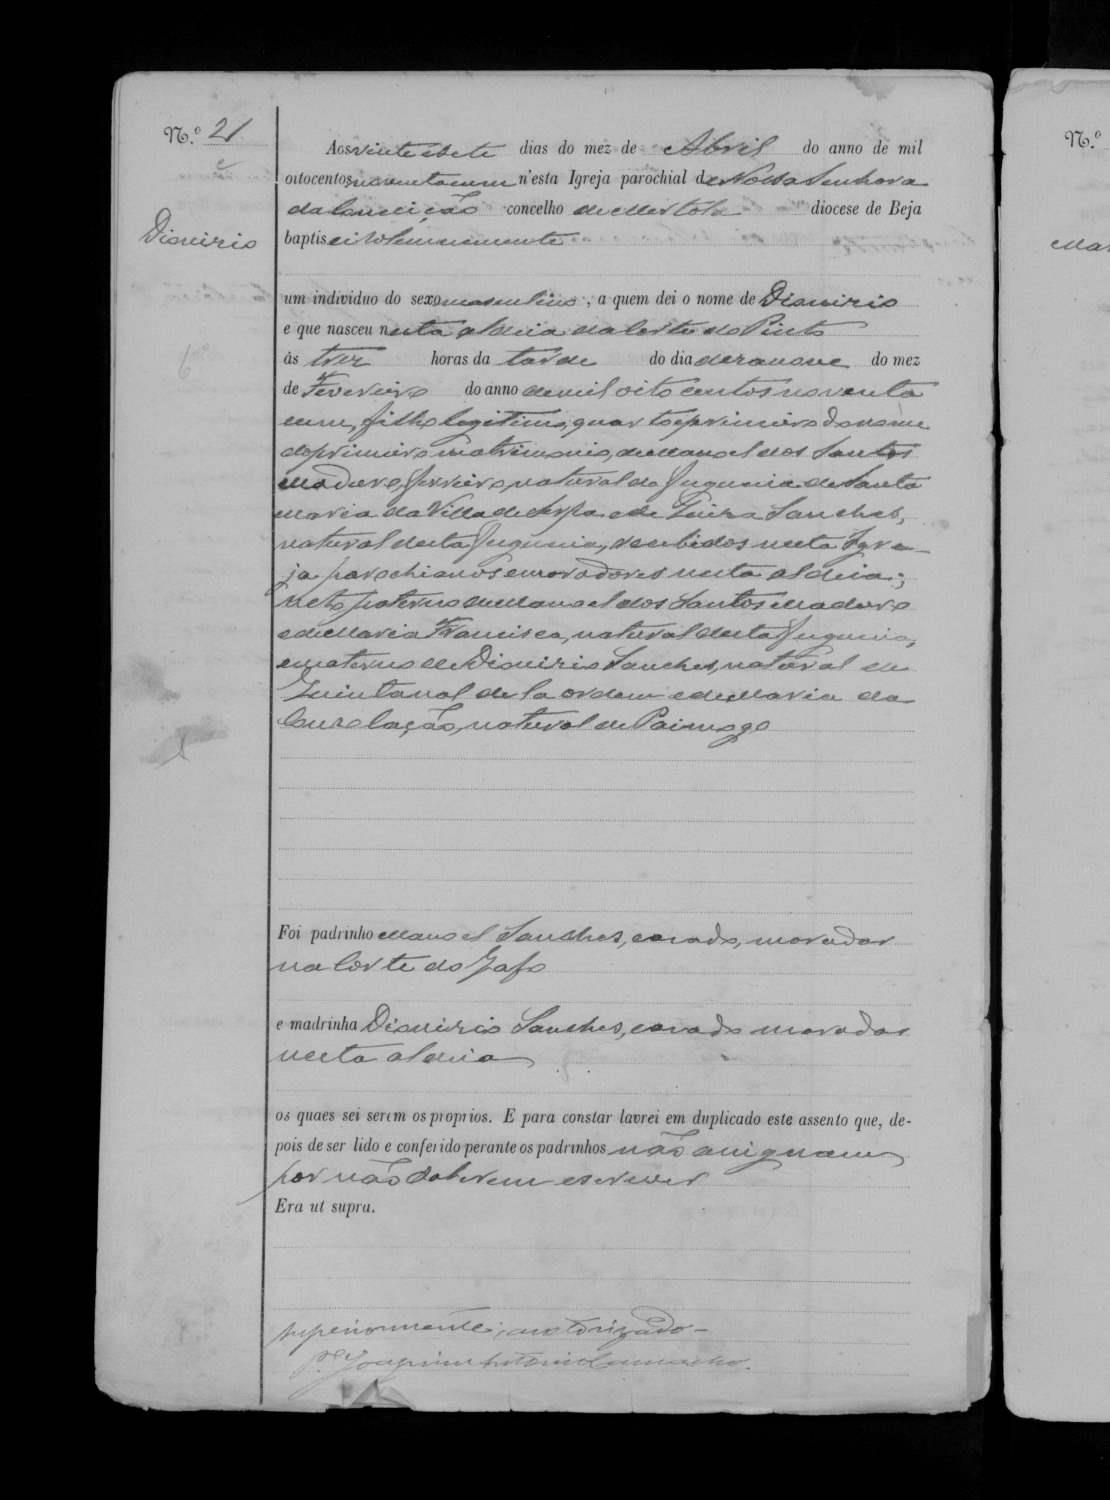 N.º 21
Aos vinte e sete dias do mez de Abril do anno de mil
oitocentos noventa e um n'esta Igreja parochial de Nossa Senhora
da Conceição concelho de Mertola diocese de Beja
Dionizio
baptisei solemnemente
um individuo do sexo masculino, a quem dei o nome de Dionizio
e que nasceu nesta aldeia da Corte do Pinto
ás trez horas da tarde do dia dezanove do mez
de Fevereiro do anno de mil oito centos noventa
e um, filho legitimo, quarto e primeiro do nome
do primeiro matrimonio, de Manoel dos Santos
Maduro, ferreiro, natural da freguesia de Santa
Maria da Villa de Serpa e de Luiza Sanches,
natural desta freguesia, recebidos nesta Igre-
ja parochianos e moradores nesta aldeia;
neto paterno de Manoel dos Santos Maduro
e de Maria Francisca, natural desta freguesia,
e materno de Dionizio Sanches, natural de
Quintanal de la orden e de Maria da
Consolação, natural de Paimogo
Foi padrinho Manoel Sanches, casado, morador
na Corte do Gafo
e madrinha Dionizio Sanches, casado morador
nesta aldeia
os quaes sei serem os proprios. E para constar lavrei em duplicado este assento que, de-
pois de ser lido e conferido perante os padrinhos não assignam
por não saberem escrever
Era ut supra.
superiormente; auctorizado-
P.e Joaquim Antonio Camacho.
N.º